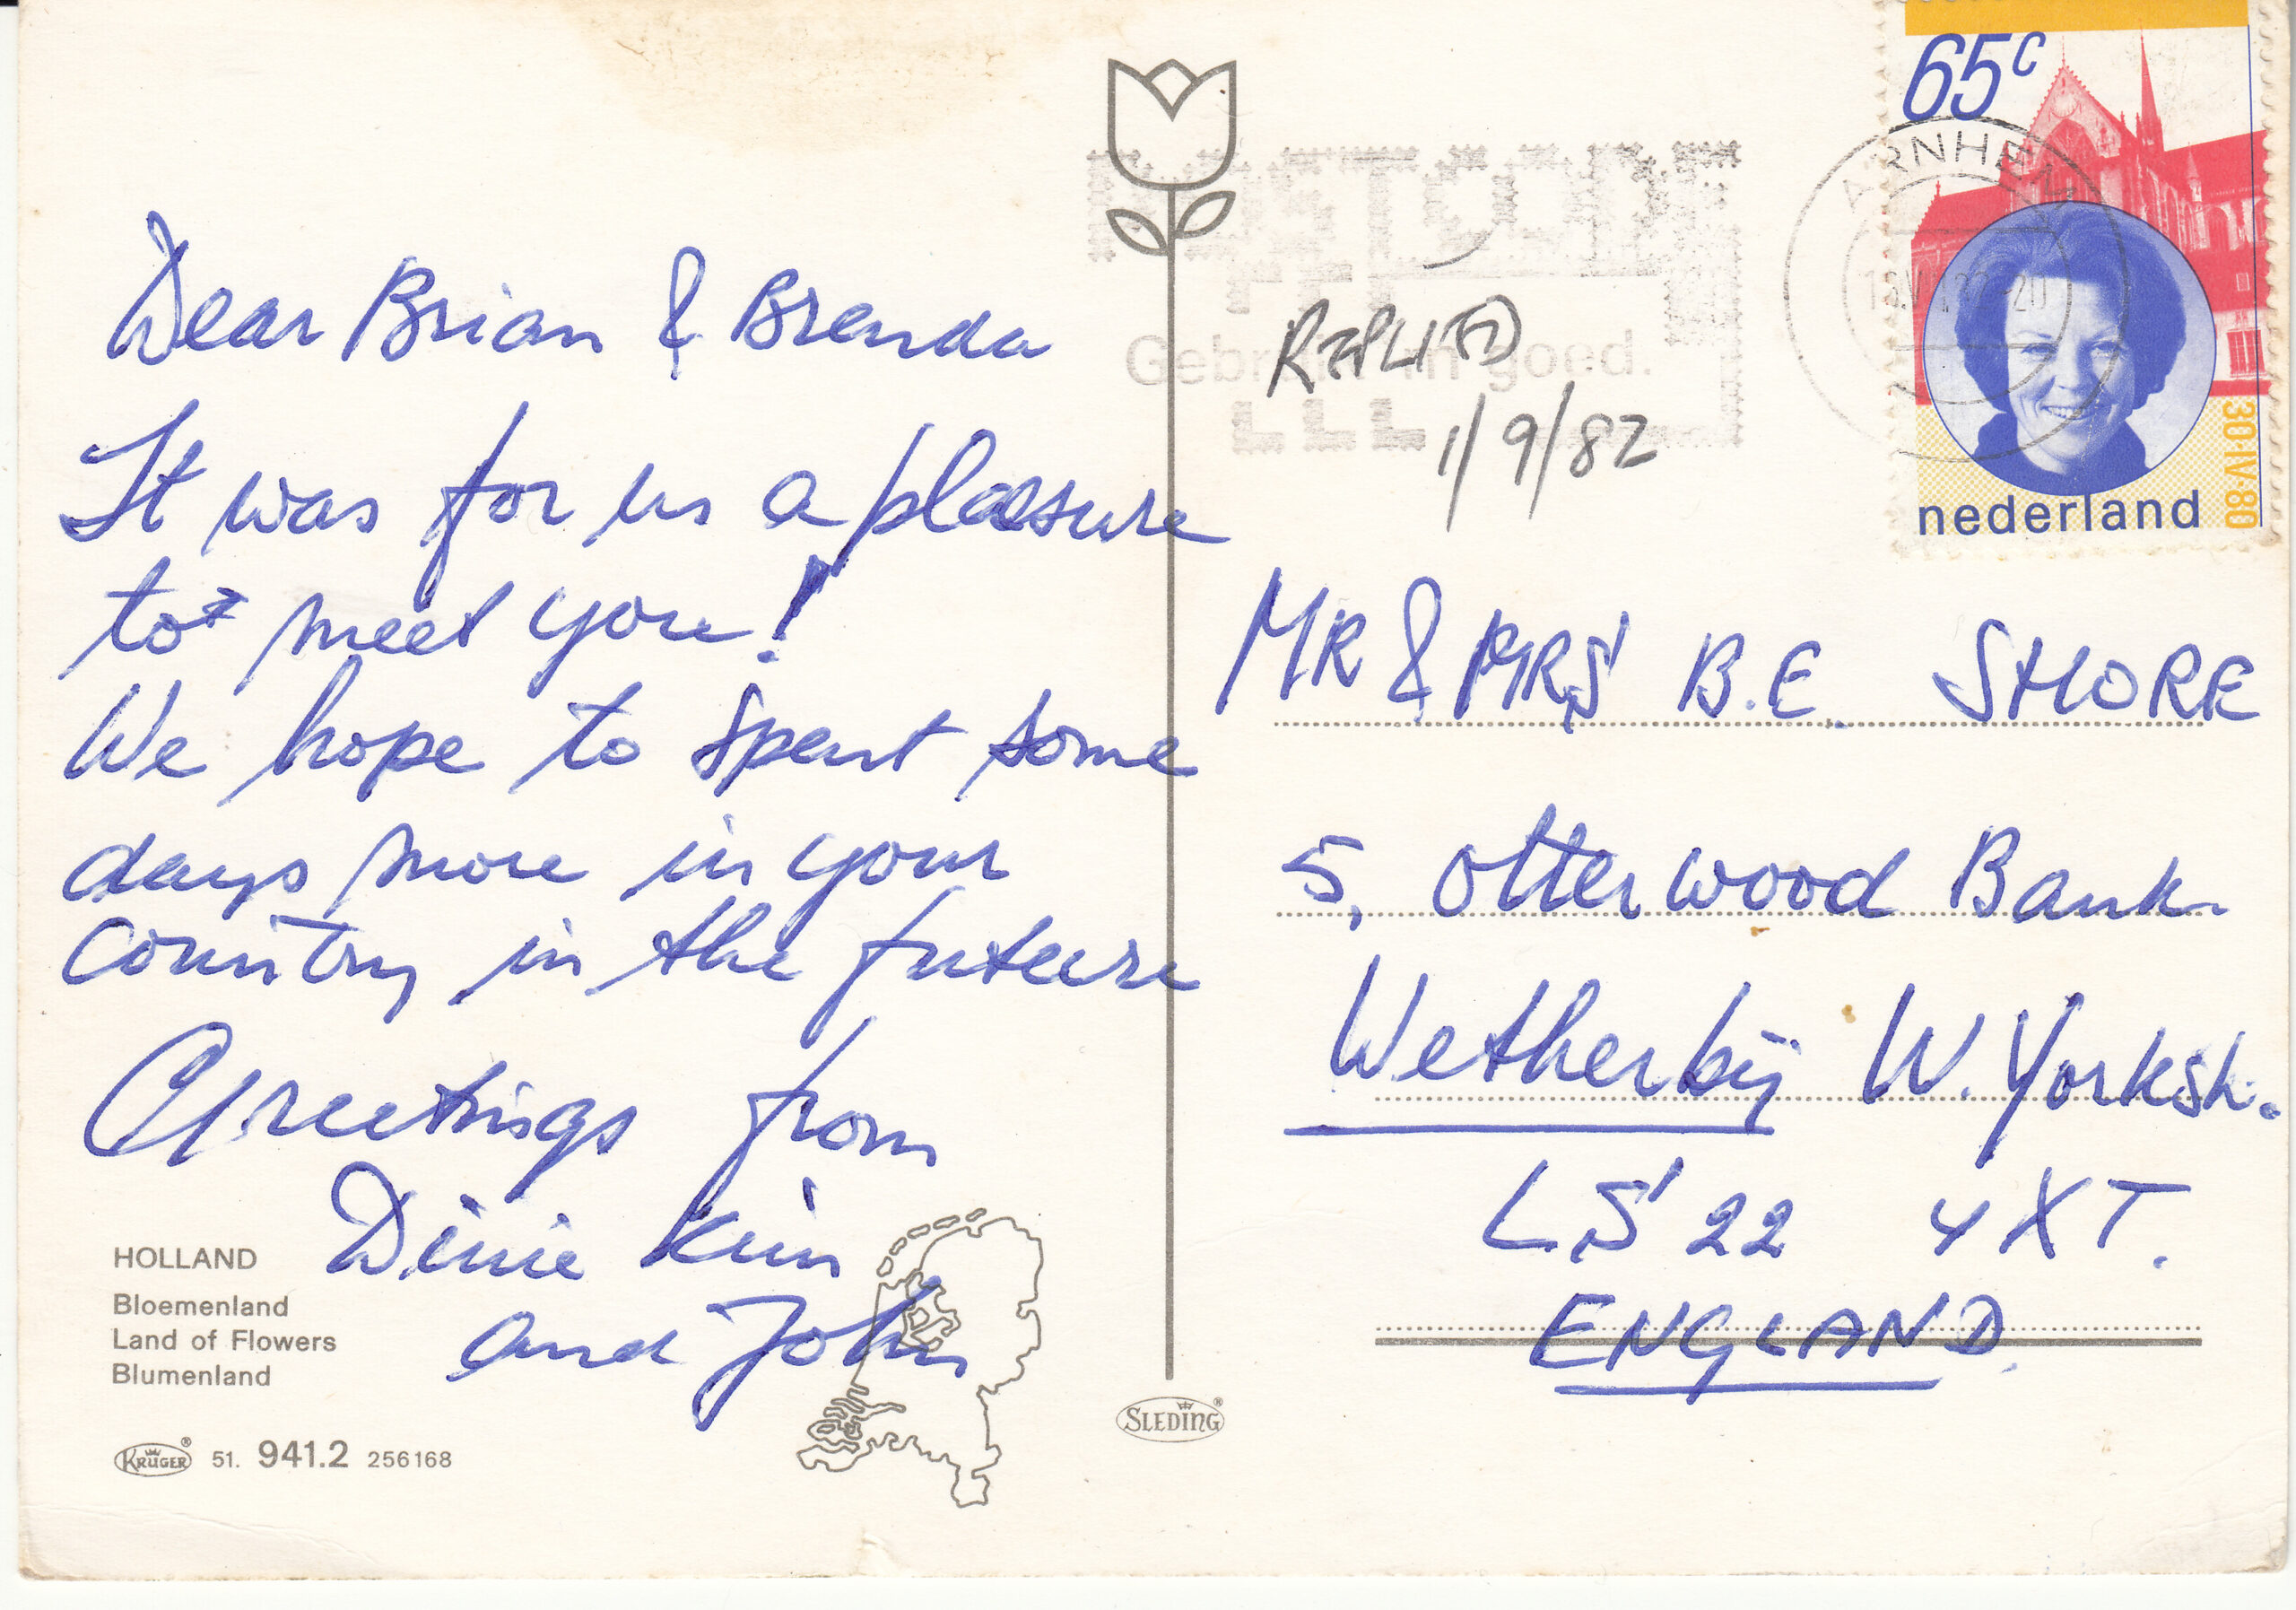 Dear Brian & Brenda
It was for us a pleasure
to meet you!
We hope to spent some
days more in your
country in the future
Greetings from
Dinie Kim
and John
HOLLAND
Bloemenland
Land of Flowers
Blumenland
KRÜGER® 51. 941.2 256168
SLEDING®
REPLIED
1/9/82
Gebruik goed.
65c
ARNHEM
30·IV·80
nederland
MR & MRS B.E. SHORE
5, Otterwood Bank.
Wetherby W. Yorksh.
LS 22 4XT.
ENGLAND.